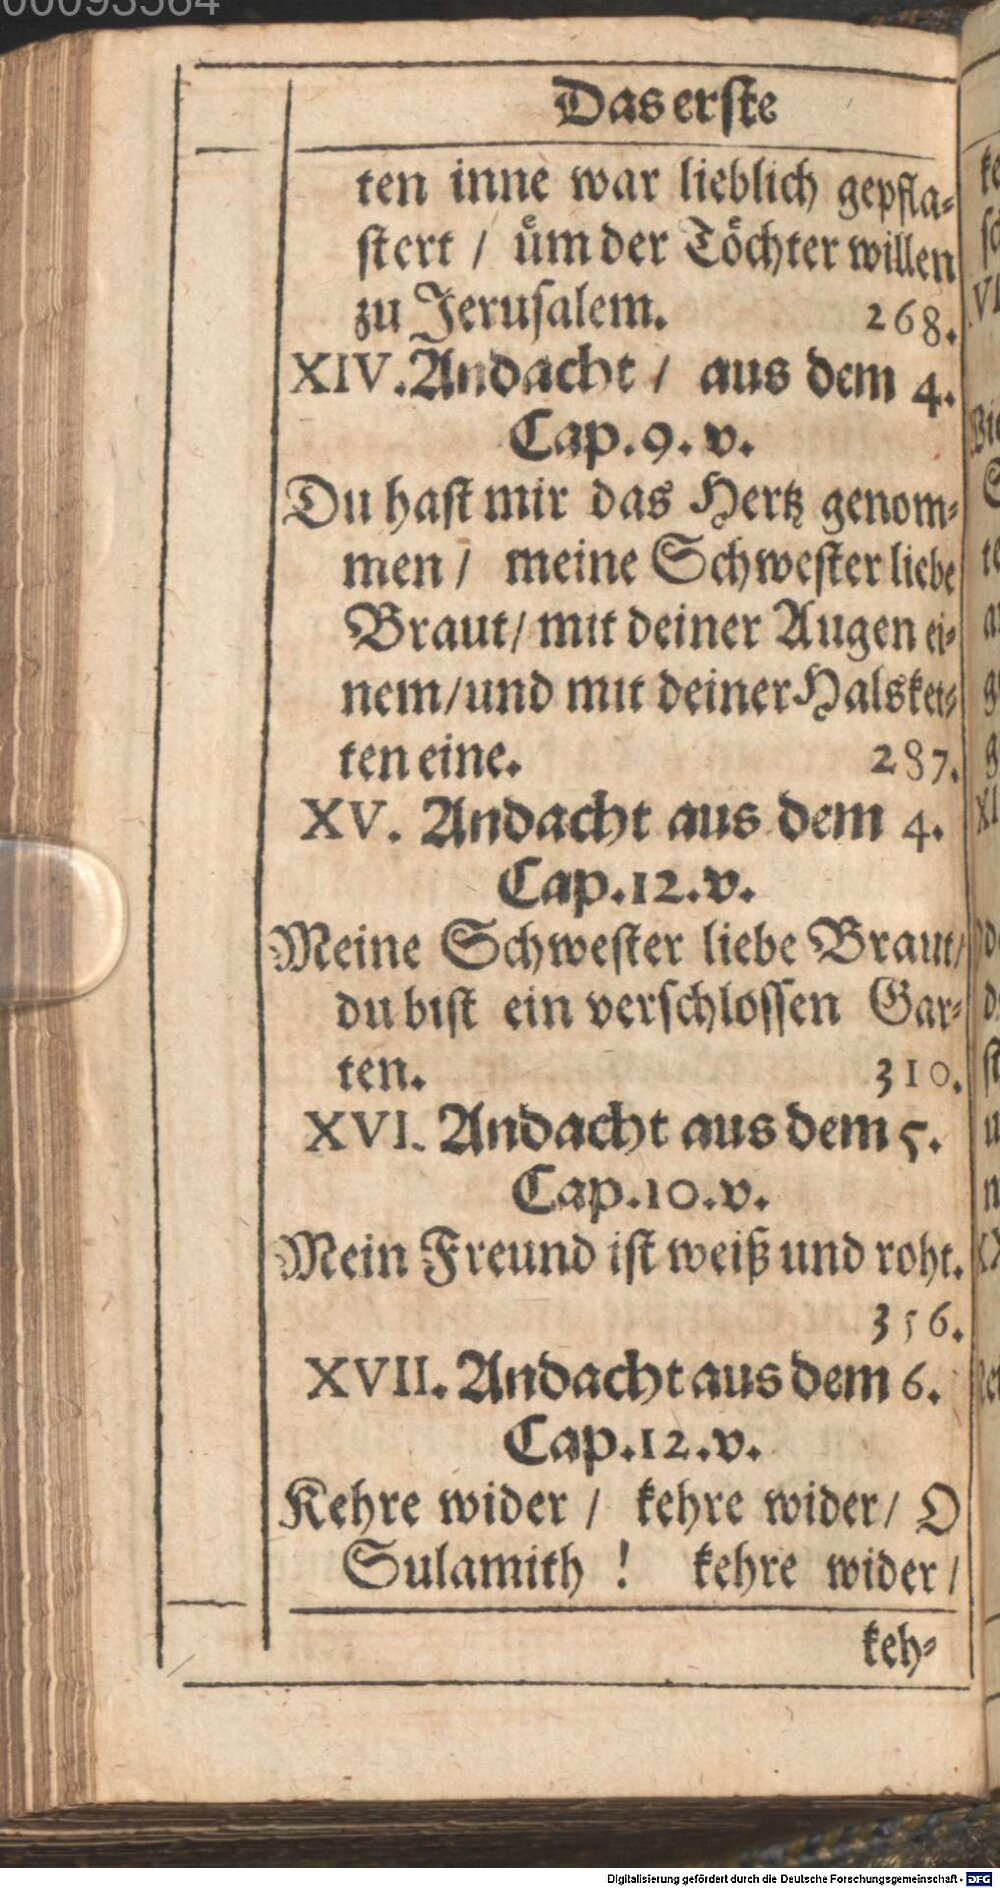 Das erste
ten inne war lieblich gepfla-
stert / üm der Töchter willen
zu Jerusalem. 268.
XIV. Andacht / aus dem 4.
Cap. 9. v.
Du hast mir das Hertz genom-
men / meine Schwester liebe
Braut / mit deiner Augen ei-
nem / und mit deiner Halsket-
ten eine. 287.
XV. Andacht aus dem 4.
Cap. 12. v.
Meine Schwester liebe Braut /
du bist ein verschlossen Gar-
ten. 310.
XVI. Andacht aus dem 5.
Cap. 10. v.
Mein Freund ist weiß und roht.
356.
XVII. Andacht aus dem 6.
Cap. 12. v.
Kehre wider / kehre wider / O
Sulamith ! kehre wider /
keh-
Digitalisierung gefördert durch die Deutsche Forschungsgemeinschaft - DFG